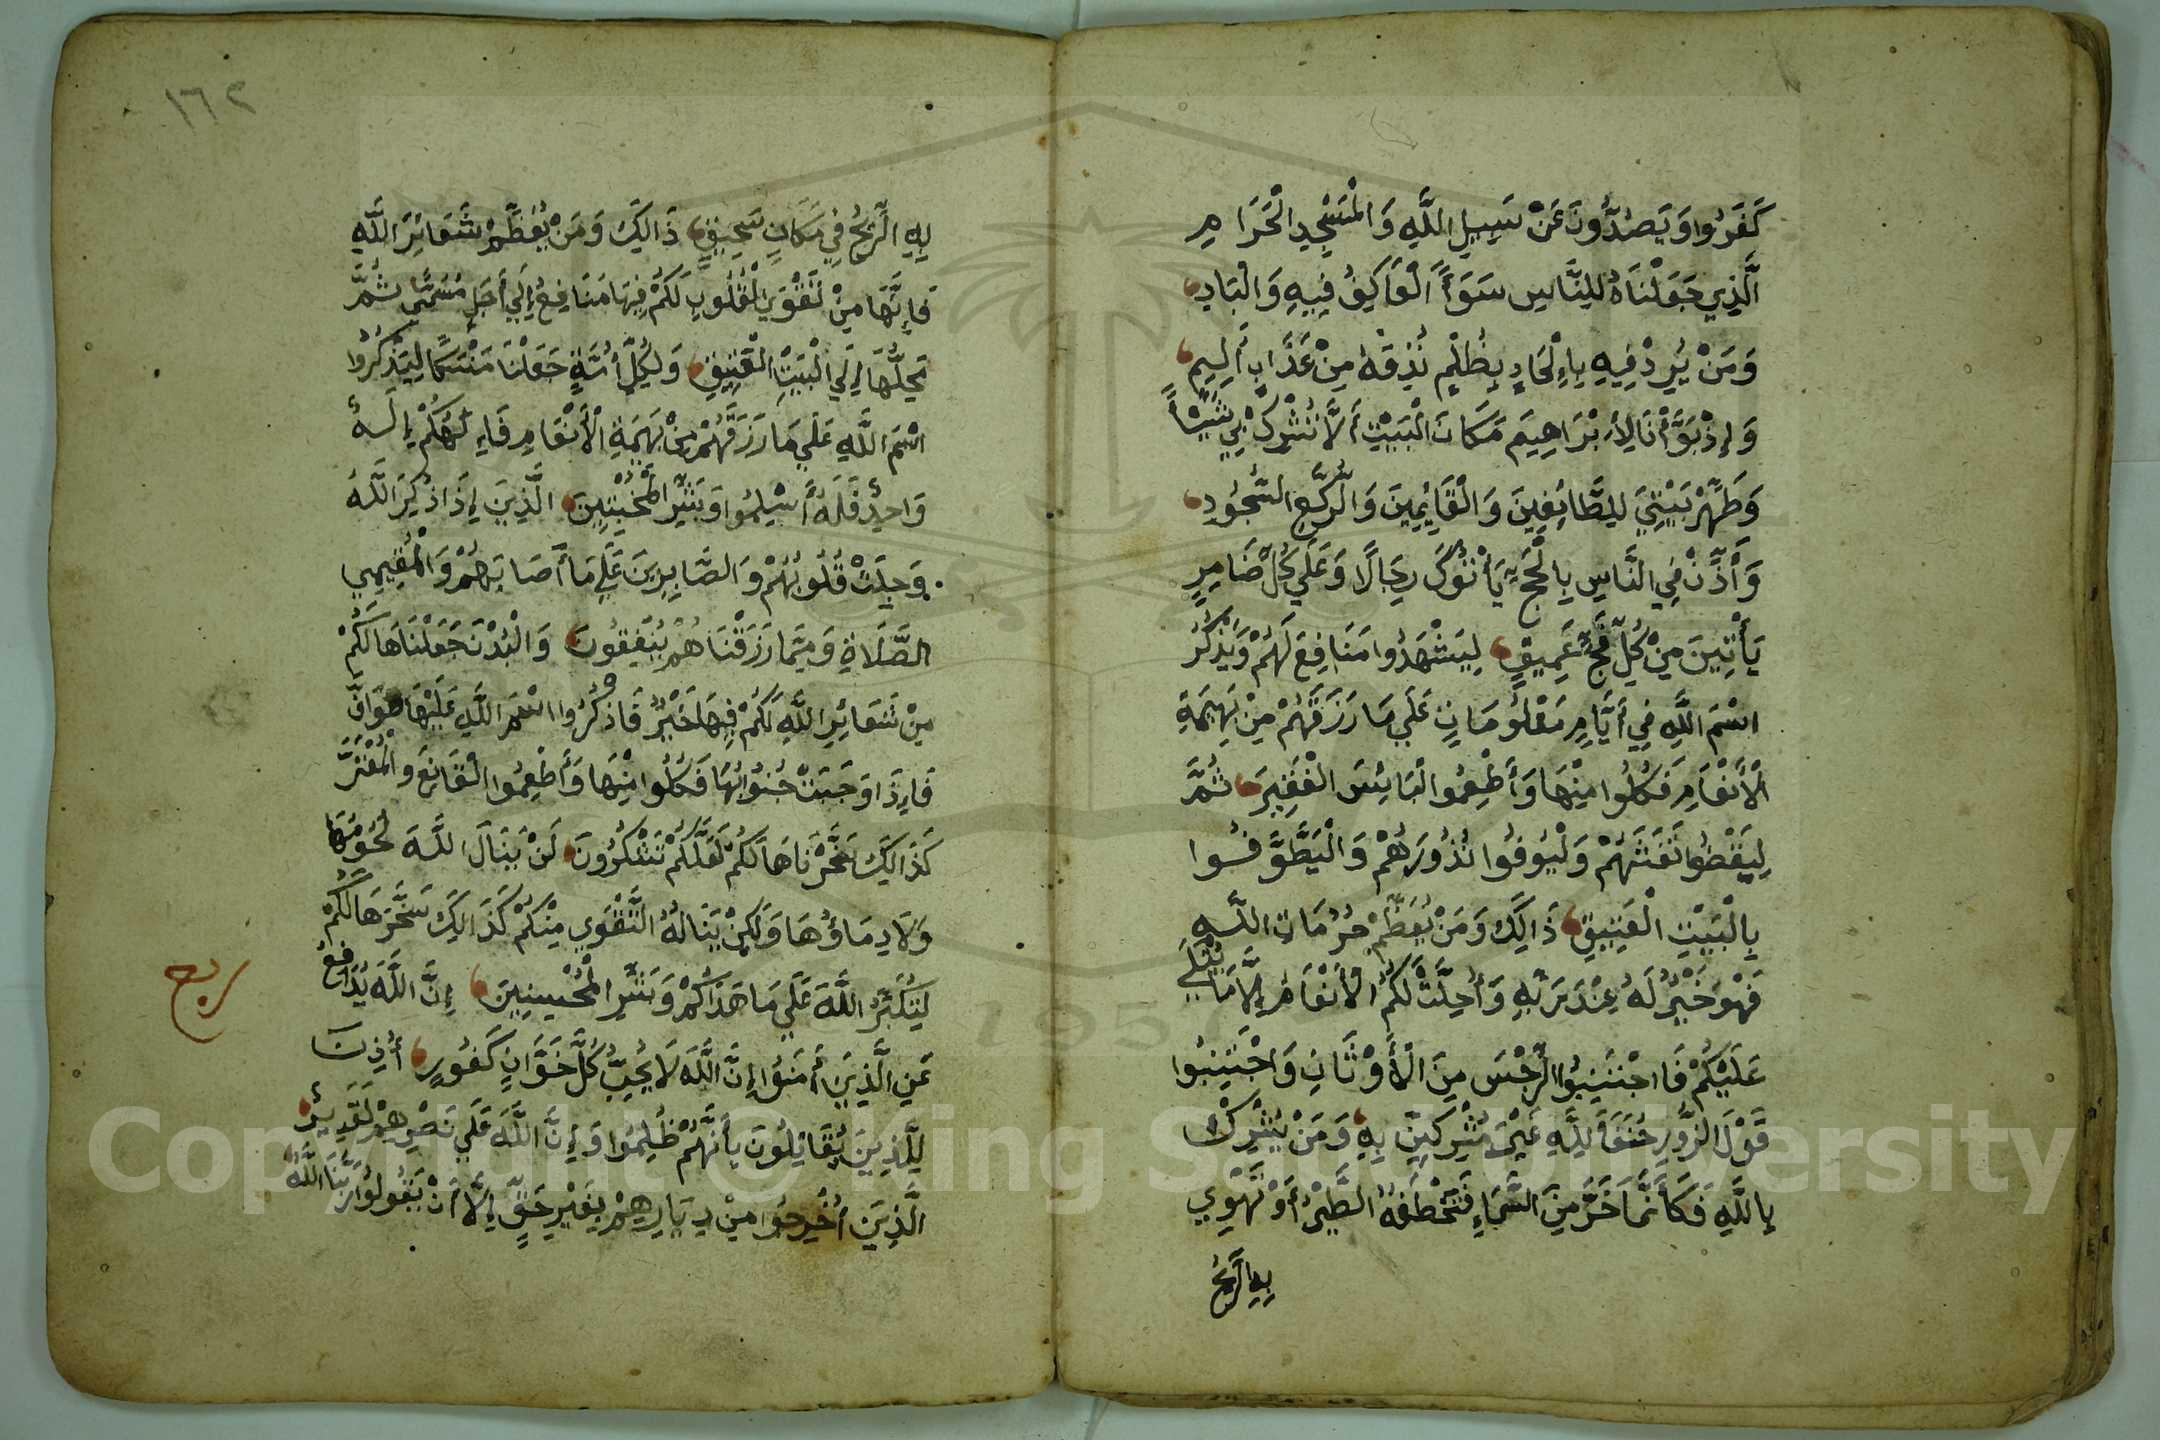 كَفَرُوا وَيَصُدُّونَ عَنْ سَبِيلِ اللَّهِ وَالْمَسْجِدِ الْحَرَامِ
الَّذِي جَعَلْنَاهُ لِلنَّاسِ سَوَآءً الْعَاكِفُ فِيهِ وَالْبَادِ
وَمَنْ يُرِدْ فِيهِ بِإِلْحَادٍ بِظُلْمٍ نُذِقْهُ مِنْ عَذَابٍ أَلِيمٍ
وَإِذْ بَوَّأْنَا لِأِبْرَاهِيمَ مَكَانَ الْبَيْتِ أَلَّا تُشْرِكْ بِي شَيْئًا
وَطَهِّرْ بَيْتِيَ لِلطَّائِفِينَ وَالْقَائِمِينَ وَالرُّكَّعِ السُّجُودِ
وَأَذِّنْ فِي النَّاسِ بِالْحَجِّ يَأْتُوكَ رِجَالًا وَعَلَي كُلِّ ضَامِرٍ
يَأْتِينَ مِنْ كُلِّ فَجٍّ عَمِيقٍ لِيَشْهَدُوا مَنَافِعَ لَهُمْ وَيَذْكُرُ
اسْمَ اللَّهِ فِي أَيَّامٍ مَعْلُومَاتٍ عَلَي مَا رَزَقَهُمْ مِنْ بَهِيمَةِ
الْأَنْعَامِ فَكُلُوا مِنْهَا وَأَطْعِمُوا الْبَائِسَ الْفَقِيرَ ثُمَّ
لِيَقْضُوا تَفَثَهُمْ وَلْيُوفُوا نُذُورَهُمْ وَالْيَطَّوَّفُوا
بِالْبَيْتِ الْعَتِيقِ ذَالِكَ وَمَنْ يُعَظِّمْ حُرُمَاتِ اللَّهِ
فَهْوَ خَيْرٌ لَهُ عِنْدَ رَبِّهِ وَأُحِلَّتْ لَكُمُ الْأَنْعَامُ إِلَّا مَا يُتْلَي
عَلَيْكُمْ فَااجْتَنِبُوا الرِّجْسَ مِنَ الْأَوْثَانِ وَاجْتَنِبُوا
قَوْلَ الزُّورِ حُنَفَآءَ لِلَّهِ غَيْرَ مُشْرِكِينَ بِهِ وَمَنْ يُشْرِكْ
بِاللَّهِ فَكَأَنَّمَا خَرَّ مِنَ السَّمَاءِ فَتَخْطَفُهُ الطَّيْرُ أَوْ تَهْوِي
بِهِ الرِّيحُ
١٦٢
بِهِ الرِّيحُ فِي مَكَانٍ سَحِيقٍ ذَالِكَ وَمَنْ يُعَظِّمْ شَعَائِرَ اللَّهِ
فَإِنَّهَا مِنْ تَقْوَي الْقُلُوبِ لَكُمْ فِيهَا مَنَافِعُ إِلَي أَجَلٍ مُسَمًّي ثُمَّ
مَحِلُّهَا إِلَي الْبَيْتِ الْعَتِيقِ وَلِكُلِّ أُمَّةٍ جَعَلْنَا مَنْسَكًا لِيَذْكُرُوا
اسْمَ اللَّهِ عَلَي مَا رَزَقَهُمْ مِنْ بَهِيمَةِ الْأَنْعَامِ فَإِلَهُكُمْ إِلَهٌ
وَاحِدٌ فَلَهُ أَسْلِمُوا وَبَشِّرِ الْمُخْبِتِينَ الَّذِينَ إِذَا ذُكِرَ اللَّهُ
وَجِلَتْ قُلُوبُهُمْ وَالصَّابِرِينَ عَلَي مَا أَصَابَهُمْ وَالْمُقِيمِي
الصَّلَاةِ وَمِمَّا رَزَقْنَاهُمْ يُنْفِقُونَ وَالْبُدْنَ جَعَلْنَاهَا لَكُمْ
مِنْ شَعَائِرِ اللَّهِ لَكُمْ فِيهَا خَيْرٌ فَاذْكُرُوا اسْمَ اللَّهِ عَلَيْهَا صَوَافَّ
فَإِذَا وَجَبَتْ جُنُوبُهَا فَكُلُوا مِنْهَا وَأَطْعِمُوا الْقَانِعَ وَالْمُعْتَرَّ
كَذَالِكَ سَخَّرْنَاهَا لَكُمْ لَعَلَّكُمْ تَشْكُرُونَ لَنْ يَنَالَ اللَّهَ لُحُومُهَا
وَلَا دِمَاؤُهَا وَلَكِنْ يَنَالُهُ التَّقْوَي مِنْكُمْ كَذَالِكَ سَخَّرَهَا لَكُمْ
لِتُكَبِّرُ اللَّهَ عَلَي مَا هَدَاكُمْ وَبَشِّرِ الْمُحْسِنِينَ إِنَّ اللَّهَ يُدَافِعُ
ربع
عَنِ الَّذِينَ أَمَنُوا إِنَّ اللَّهَ لَا يُحِبُّ كُلَّ خَوَّانٍ كَفُورٍ أُذِنَ
لِلَّذِينَ يُقَاتِلُونَ بِأَنَّهُمْ ظُلِمُوا وَإِنَّ اللَّهَ عَلَي نَصْرِهِمْ لَقَدِيرٌ
الَّذِينَ أُخْرِجُوا مِنْ دِيَارِهِمْ بِغَيْرِ حَقٍّ إِلَّا أَنْ يَقُولُوا رَبُّنَا اللَّهُ
Copyright © King Saud University
1957